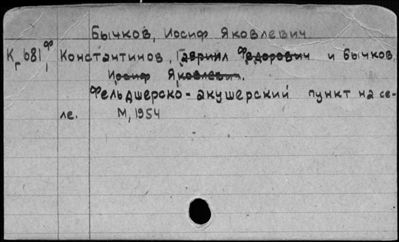 Бычков, Иосиф Яковлевич
Кг 681, Ф Константинов, Гавриил Федорович и Бычков,
Иосиф Яковлевич.
Фельдшерско-акушерский пункт на се-
ле. М, 1954